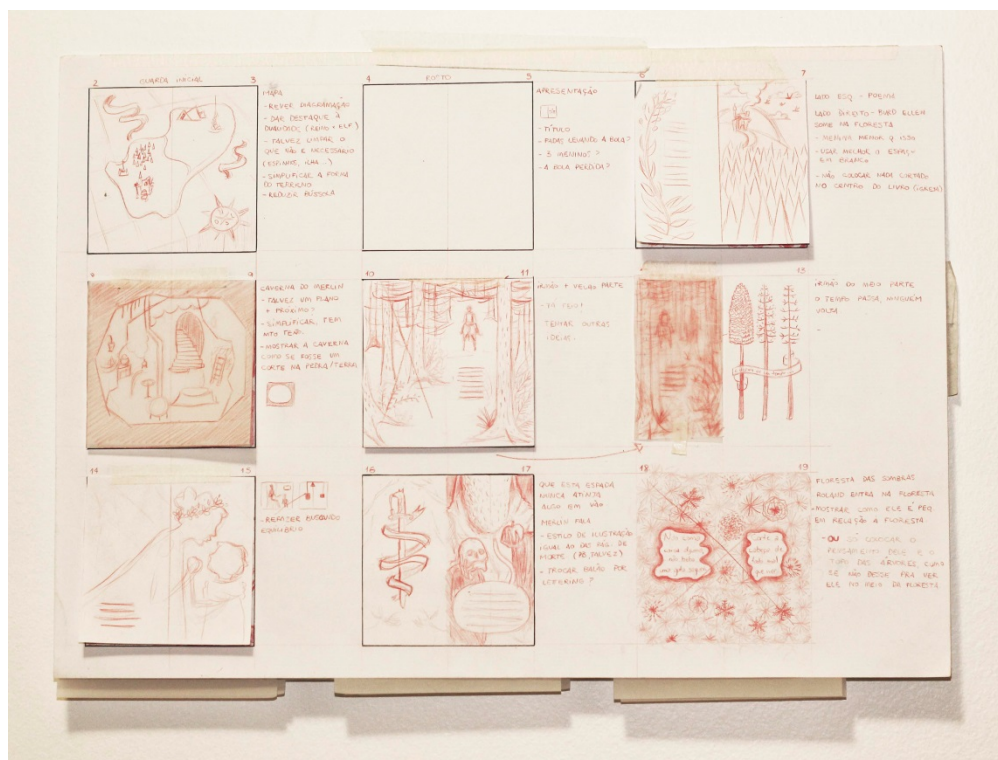 2 GUARDA INICIAL 3
MAPA
- REVER DIAGRAMAÇÃO
- DAR DESTAQUE À
(REINO + ELF)
- TALVEZ LIMAR O
QUE NÃO É NECESSÁRIO
(ESPINHOS, ILHA...)
- SIMPLIFICAR A FORMA
DO TERRENO
- REDUZIR BÚSSOLA
4 ROSTO 5
APRESENTAÇÃO
- TÍTULO
- FADAS LEVANDO A BOLA?
- 3 MENINOS?
- A BOLA PERDIDA?
6 7
LADO ESQ. - POEMA
LADO DIREITO - BURD ELLEN
SOME NA FLORESTA
- MENOR Q ISSO
- USAR MELHOR O ESPAÇO
EM BRANCO
- NÃO COLOCAR NADA CORTADO
NO CENTRO DO LIVRO
8 9
CAVERNA DO MERLIN
- TALVEZ UM PLANO
+ PRÓXIMO?
- SIMPLIFICAR, TEM
MTO
- MOSTRAR A CAVERNA
COMO SE FOSSE UM
CORTE NA PEDRA/TERRA
10 11
IRMÃO + VELHO PARTE
TENTAR OUTRAS
IDEIAS.
13
IRMÃO DO MEIO PARTE
O TEMPO PASSA, NINGUÉM
VOLTA
14 15
- REFAZER BUSCANDO
EQUILÍBRIO
16 17
QUE ESTA ESPADA
NUNCA ATINJA
ALGO EM VÃO
MERLIN FALA
- ESTILO DE ILUSTRAÇÃO
IGUAL AO DE PÁG. DE
MORTE (PB, TALVEZ)
- TROCAR BALÃO POR
LETREIRO?
18 19
corte a
cabeça de
FLORESTA DAS SOMBRAS
ROLAND ENTRA NA FLORESTA
- MOSTRAR COMO ELE É PEQ.
EM RELAÇÃO À FLORESTA
- OU SÓ COLOCAR O
PENSAMENTO DELE E O
TOPO DAS ÁRVORES, COMO
SE NÃO DESSE PRA VER
ELE NO MEIO DA FLORESTA